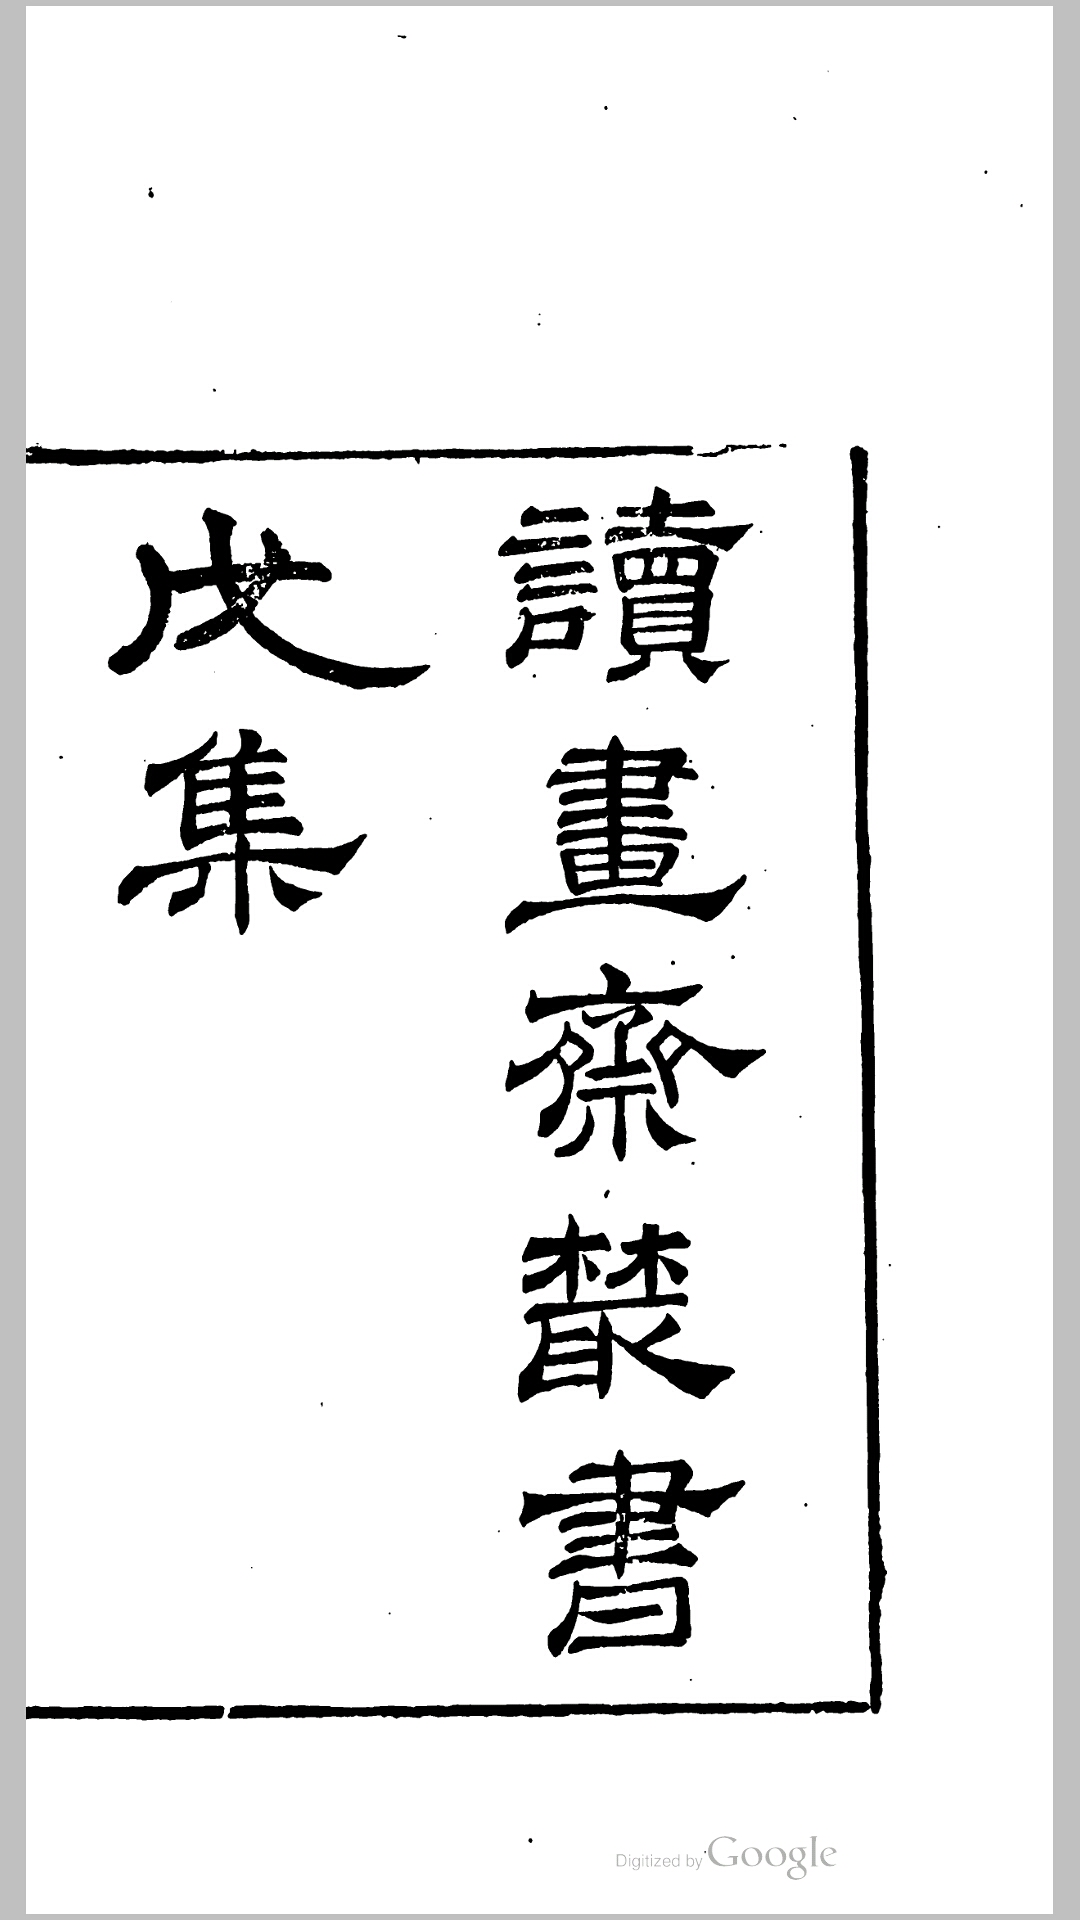 讀畫齋叢書
戊集
Digitized by Google